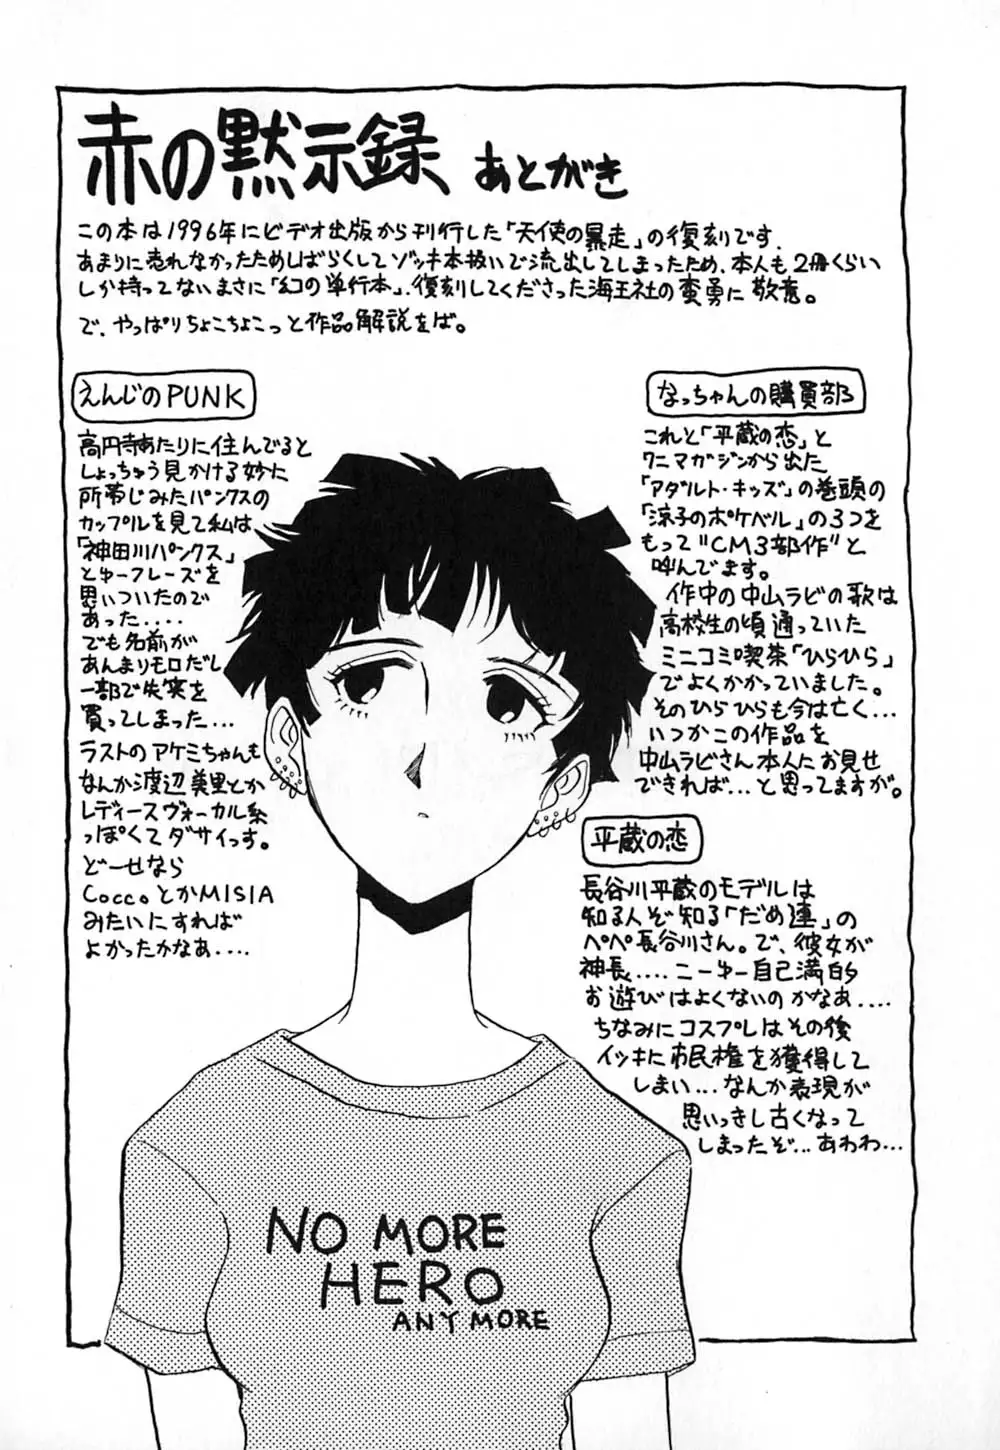 赤の黙示録 あとがき
この本は1996年にビデオ出版から刊行した「天使の暴走」の復刻です.
あまりに売れなかったためしばらくしてゾッキ本扱いで流出してしまったため、本人も2冊くらい
しか持ってないまさに「幻の単行本」.復刻してくださった海王社の蛮勇に敬意。
で、やっぱりちょこちょこっと作品解説をば。
えんじのPUNK
高円寺あたりに住んでると
しょっちゅう見かける妙に
所帯じみたパンクスの
カップルを見て私は
「神田川パンクス」
とゆーフレーズを
思いついたので
あった....
でも名前が
あんまりモロだし
一部で失笑を
買ってしまった...
ラストのアケミちゃんも
なんか渡辺美里とか
レディースヴォーカル系
っぽくてダサイっす。
どーせなら
CoccoとかMISIA
みたいにすれば
よかったかなあ....
なっちゃんの購買部
これと「平蔵の恋」と
ワニマガジンから出た
「アダルト・キッズ」の巻頭の
「涼子のポケベル」の3つを
もって"CM3部作"と
呼んでます。
作中の中山ラビの歌は
高校生の頃通っていた
ミニコミ喫茶「ひらひら」
でよくかかっていました。
そのひらひらも今は亡く...
いつかこの作品を
中山ラビさん本人にお見せ
できれば...と思ってますが。
平蔵の恋
長谷川平蔵のモデルは
知る人ぞ知る「だめ連」の
ペペ長谷川さん。で、彼女が
神長....こーゆー自己満的
お遊びはよくないのかなあ....
ちなみにコスプレはその後
イッキに市民権を獲得して
しまい...なんか表現が
思いっきし古くなって
しまったぞ...あわわ...
NO MORE
HERO
ANY MORE